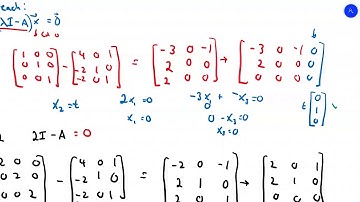 each:
λI-A) x⃗ = 0⃗
b
[1 0 0; 0 1 0; 0 0 1] - [4 0 1; -2 1 0; -2 0 1] = [-3 0 -1; 2 0 0; 2 0 0] → [-3 0 -1 0; 2 0 0 0; 2 0 0 0]
x₂ = t 2x₁ = 0 -3x₁ - x₃ = 0 t[0; 1; 0]
x₁ = 0 0 - x₃ = 0
x₃ = 0
2 2I-A = 0
2 0 0; 0 2 0; 0 0 2] - [4 0 1; -2 1 0; -2 0 1] = [-2 0 -1; 2 1 0; 2 0 1] → [2 0 1; 2 1 0; 2 0 1]